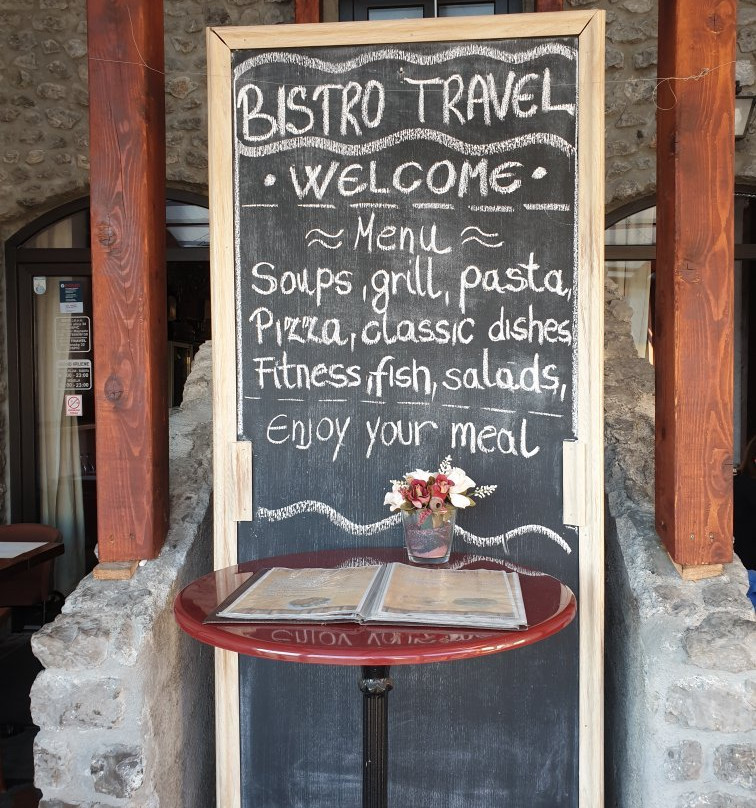 BISTRO TRAVEL
• WELCOME •
≈ Menu ≈
Soups, grill, pasta,
Pizza, classic dishes
Fitness, fish, salads,
Enjoy your meal